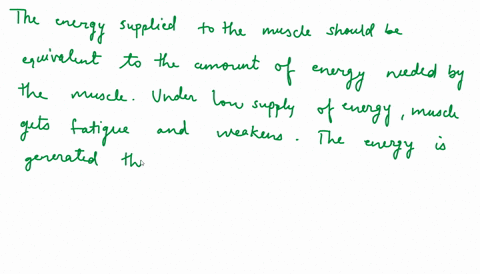 The energy supplied to the muscle should be
equivalent to the amount of energy needed by
the muscle. Under low supply of energy, muscle
gets fatigue and weakens. The energy is
generated th